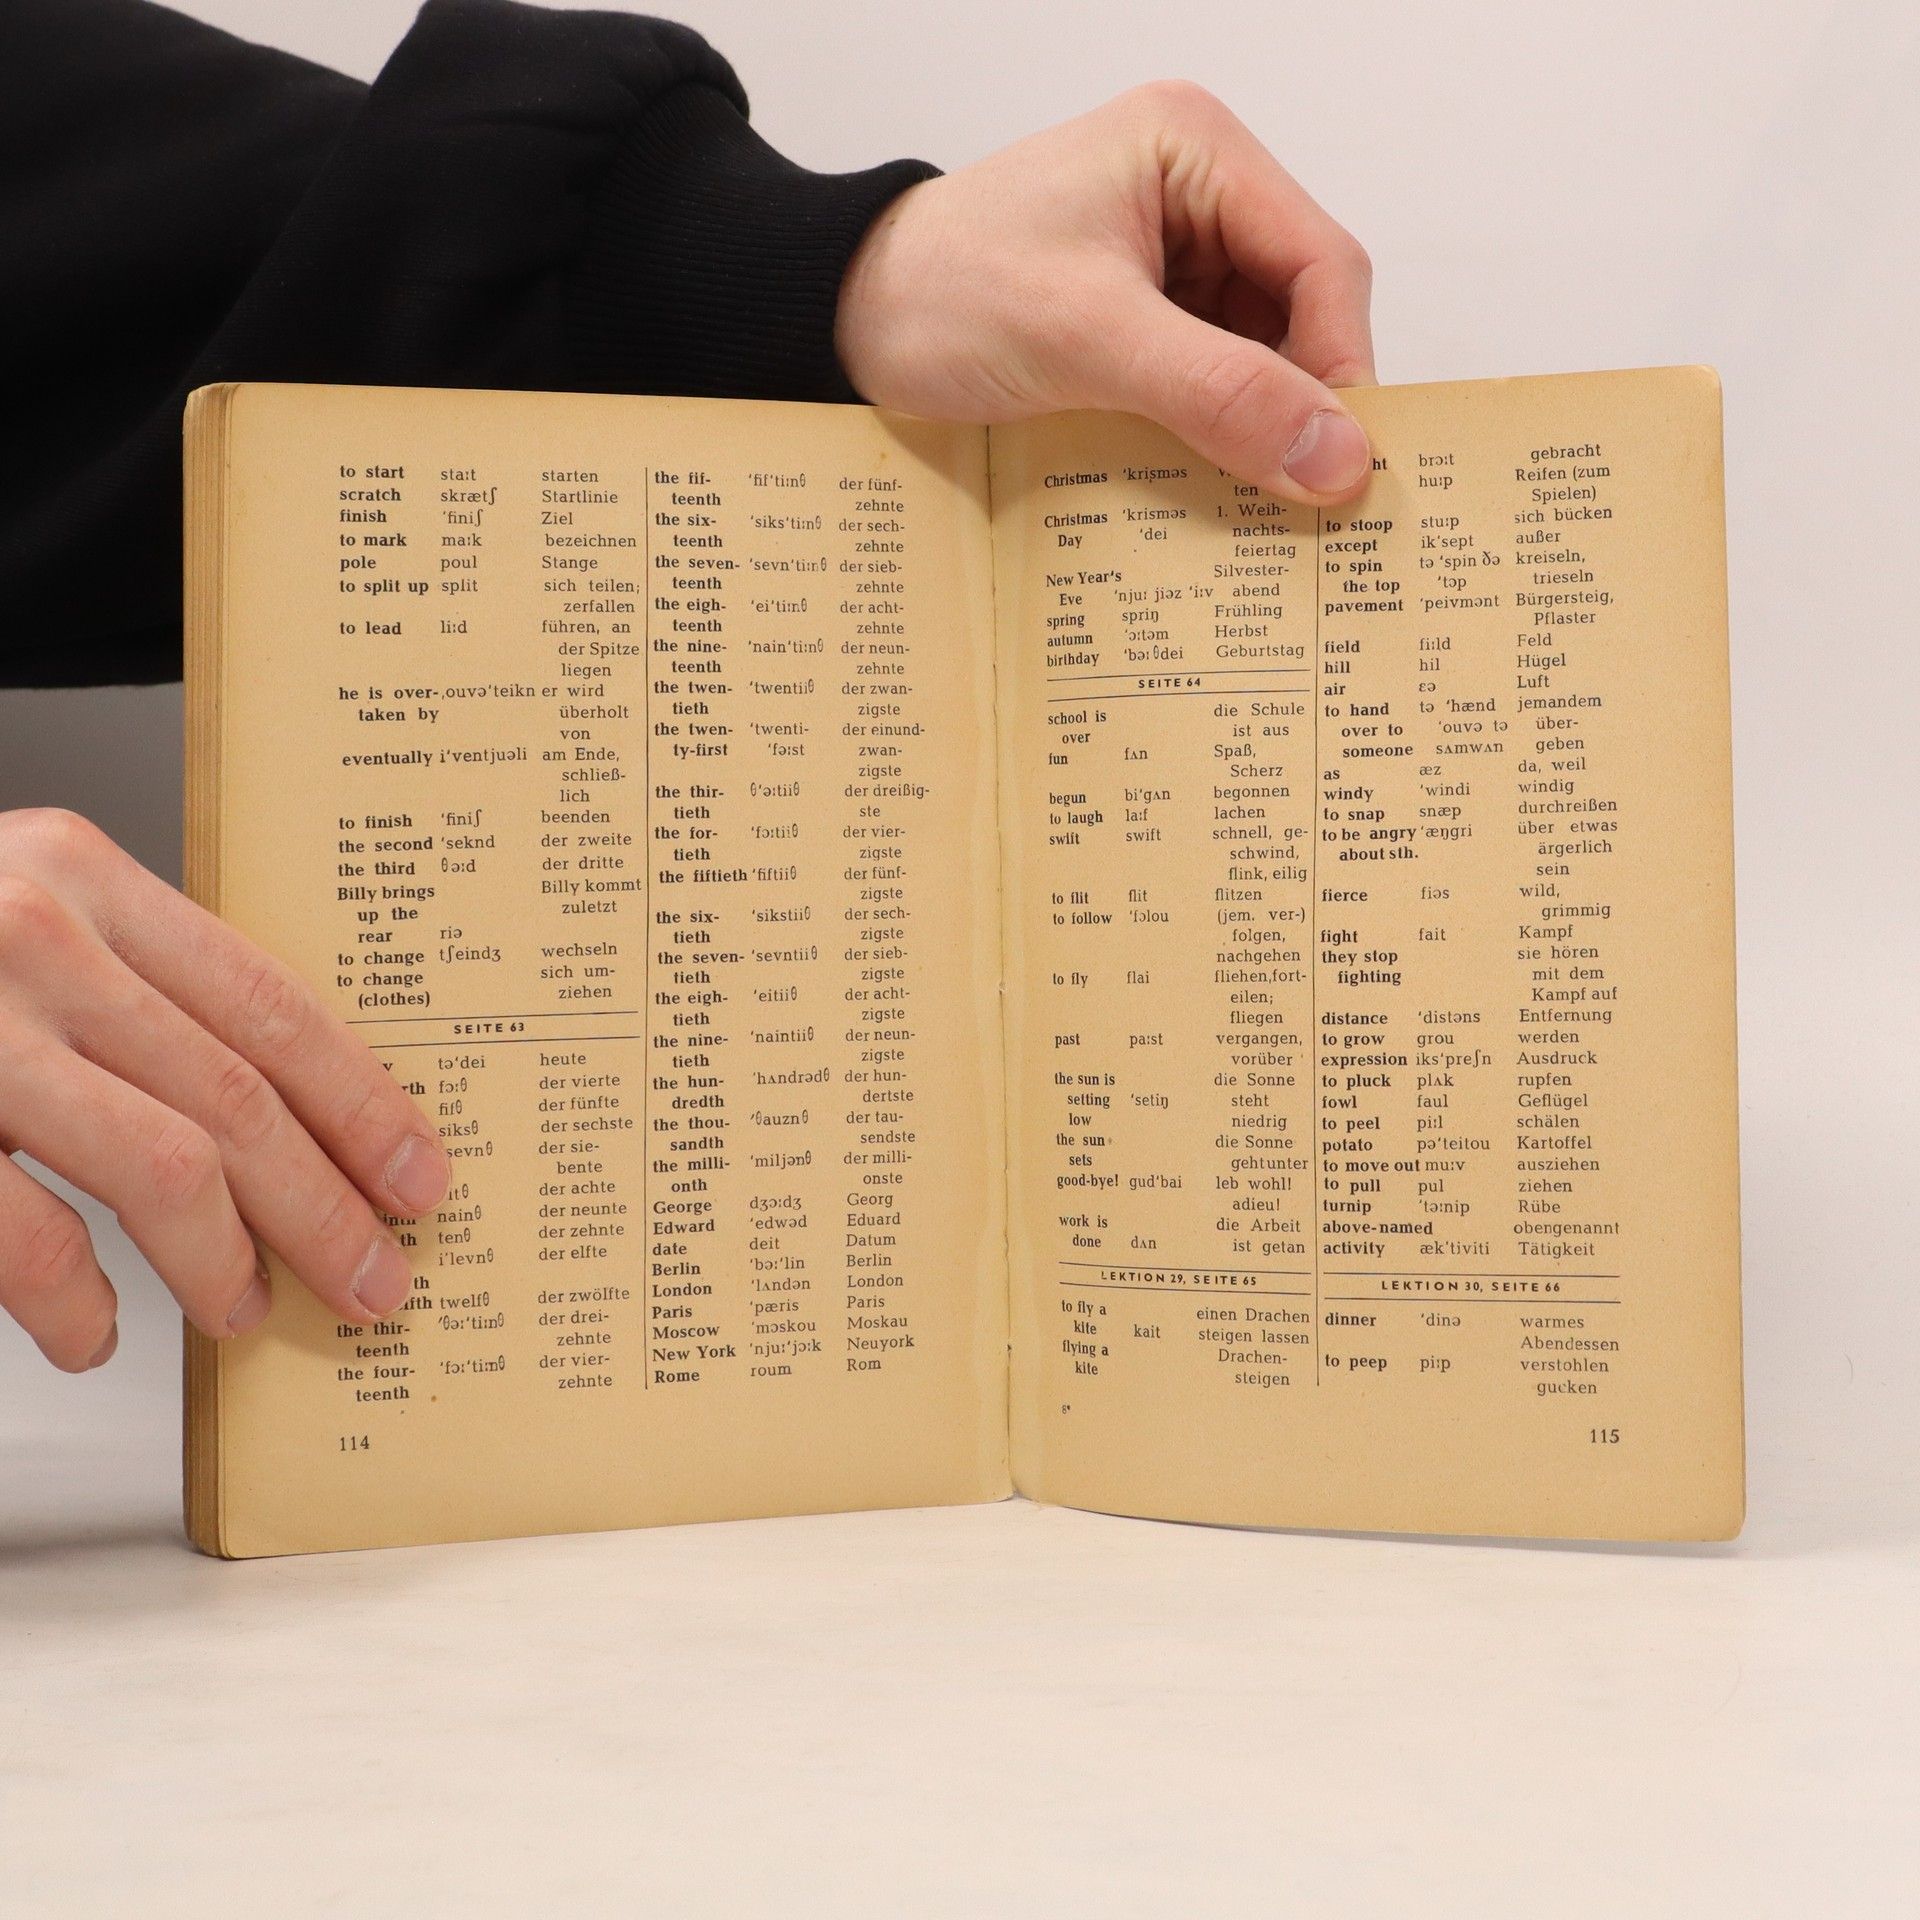 to start staːt starten
scratch skrætʃ Startlinie
finish ˈfiniʃ Ziel
to mark maːk bezeichnen
pole poul Stange
to split up split sich teilen;
zerfallen
to lead liːd führen, an
der Spitze
liegen
he is over- ˌouvəˈteikn er wird
taken by überholt
von
eventually iˈventjuəli am Ende,
schließ-
lich
to finish ˈfiniʃ beenden
the second ˈseknd der zweite
the third θəːd der dritte
Billy brings Billy kommt
up the zuletzt
rear riə
to change tʃeindʒ wechseln
to change sich um-
(clothes) ziehen
SEITE 63
təˈdei heute
fɔːθ der vierte
fifθ der fünfte
siksθ der sechste
sevnθ der sie-
bente
der achte
nainθ der neunte
tenθ der zehnte
iˈlevnθ der elfte
twelfθ der zwölfte
the thir- ˈθəːˈtiːnθ der drei-
teenth zehnte
the four- ˈfɔːˈtiːnθ der vier-
teenth zehnte
114
the fif- ˈfifˈtiːnθ der fünf-
teenth zehnte
the six- ˈsiksˈtiːnθ der sech-
teenth zehnte
the seven- ˈsevnˈtiːnθ der sieb-
teenth zehnte
the eigh- ˈeiˈtiːnθ der acht-
teenth zehnte
the nine- ˈnainˈtiːnθ der neun-
teenth zehnte
the twen- ˈtwentiiθ der zwan-
tieth zigste
the twen- ˈtwenti- der einund-
ty-first ˈfəːst zwan-
zigste
the thir- θˈəːtiiθ der dreißig-
tieth ste
the for- ˈfɔːtiiθ der vier-
tieth zigste
the fiftieth ˈfiftiiθ der fünf-
zigste
the six- ˈsikstiiθ der sech-
tieth zigste
the seven- ˈsevntiiθ der sieb-
tieth zigste
the eigh- ˈeitiiθ der acht-
tieth zigste
the nine- ˈnaintiiθ der neun-
tieth zigste
the hun- ˈhʌndrədθ der hun-
dredth dertste
the thou- ˈθauznθ der tau-
sandth sendste
the milli- ˈmiljənθ der milli-
onth onste
George dʒɔːdʒ Georg
Edward ˈedwəd Eduard
date deit Datum
Berlin ˈbəːˈlin Berlin
London ˈlʌndən London
Paris ˈpæris Paris
Moscow ˈmɔskou Moskau
New York ˈnjuːˈjɔːk Neuyork
Rome roum Rom
Christmas ˈkrisməs
ten
Christmas ˈkrisməs 1. Weih-
Day ˈdei nachts-
feiertag
New Year's Silvester-
Eve ˈnjuː jiəz ˈiːv abend
spring spriŋ Frühling
autumn ˈɔːtəm Herbst
birthday ˈbəːθdei Geburtstag
SEITE 64
school is die Schule
over ist aus
fun fʌn Spaß,
Scherz
begun biˈgʌn begonnen
to laugh laːf lachen
swift swift schnell, ge-
schwind,
flink, eilig
to flit flit flitzen
to follow ˈfɔlou (jem. ver-)
folgen,
nachgehen
to fly flai fliehen, fort-
eilen;
fliegen
past paːst vergangen,
vorüber
the sun is die Sonne
setting ˈsetiŋ steht
low niedrig
the sun die Sonne
sets geht unter
good-bye! gudˈbai leb wohl!
adieu!
work is die Arbeit
done dʌn ist getan
LEKTION 29, SEITE 65
to fly a einen Drachen
kite kait steigen lassen
flying a Drachen-
kite steigen
8*
brɔːt gebracht
huːp Reifen (zum
Spielen)
to stoop stuːp sich bücken
except ikˈsept außer
to spin tə ˈspin ðə kreiseln,
the top ˈtɔp trieseln
pavement ˈpeivmənt Bürgersteig,
Pflaster
field fiːld Feld
hill hil Hügel
air ɛə Luft
to hand tə ˈhænd jemandem
over to ˈouvə tə über-
someone sʌmwʌn geben
as æz da, weil
windy ˈwindi windig
to snap snæp durchreißen
to be angry ˈæŋgri über etwas
about sth. ärgerlich
sein
fierce fiəs wild,
grimmig
fight fait Kampf
they stop sie hören
fighting mit dem
Kampf auf
distance ˈdistəns Entfernung
to grow grou werden
expression iksˈpreʃn Ausdruck
to pluck plʌk rupfen
fowl faul Geflügel
to peel piːl schälen
potato pəˈteitou Kartoffel
to move out muːv ausziehen
to pull pul ziehen
turnip ˈtəːnip Rübe
above-named obengenannt
activity ækˈtiviti Tätigkeit
LEKTION 30, SEITE 66
dinner ˈdinə warmes
Abendessen
to peep piːp verstohlen
gucken
115